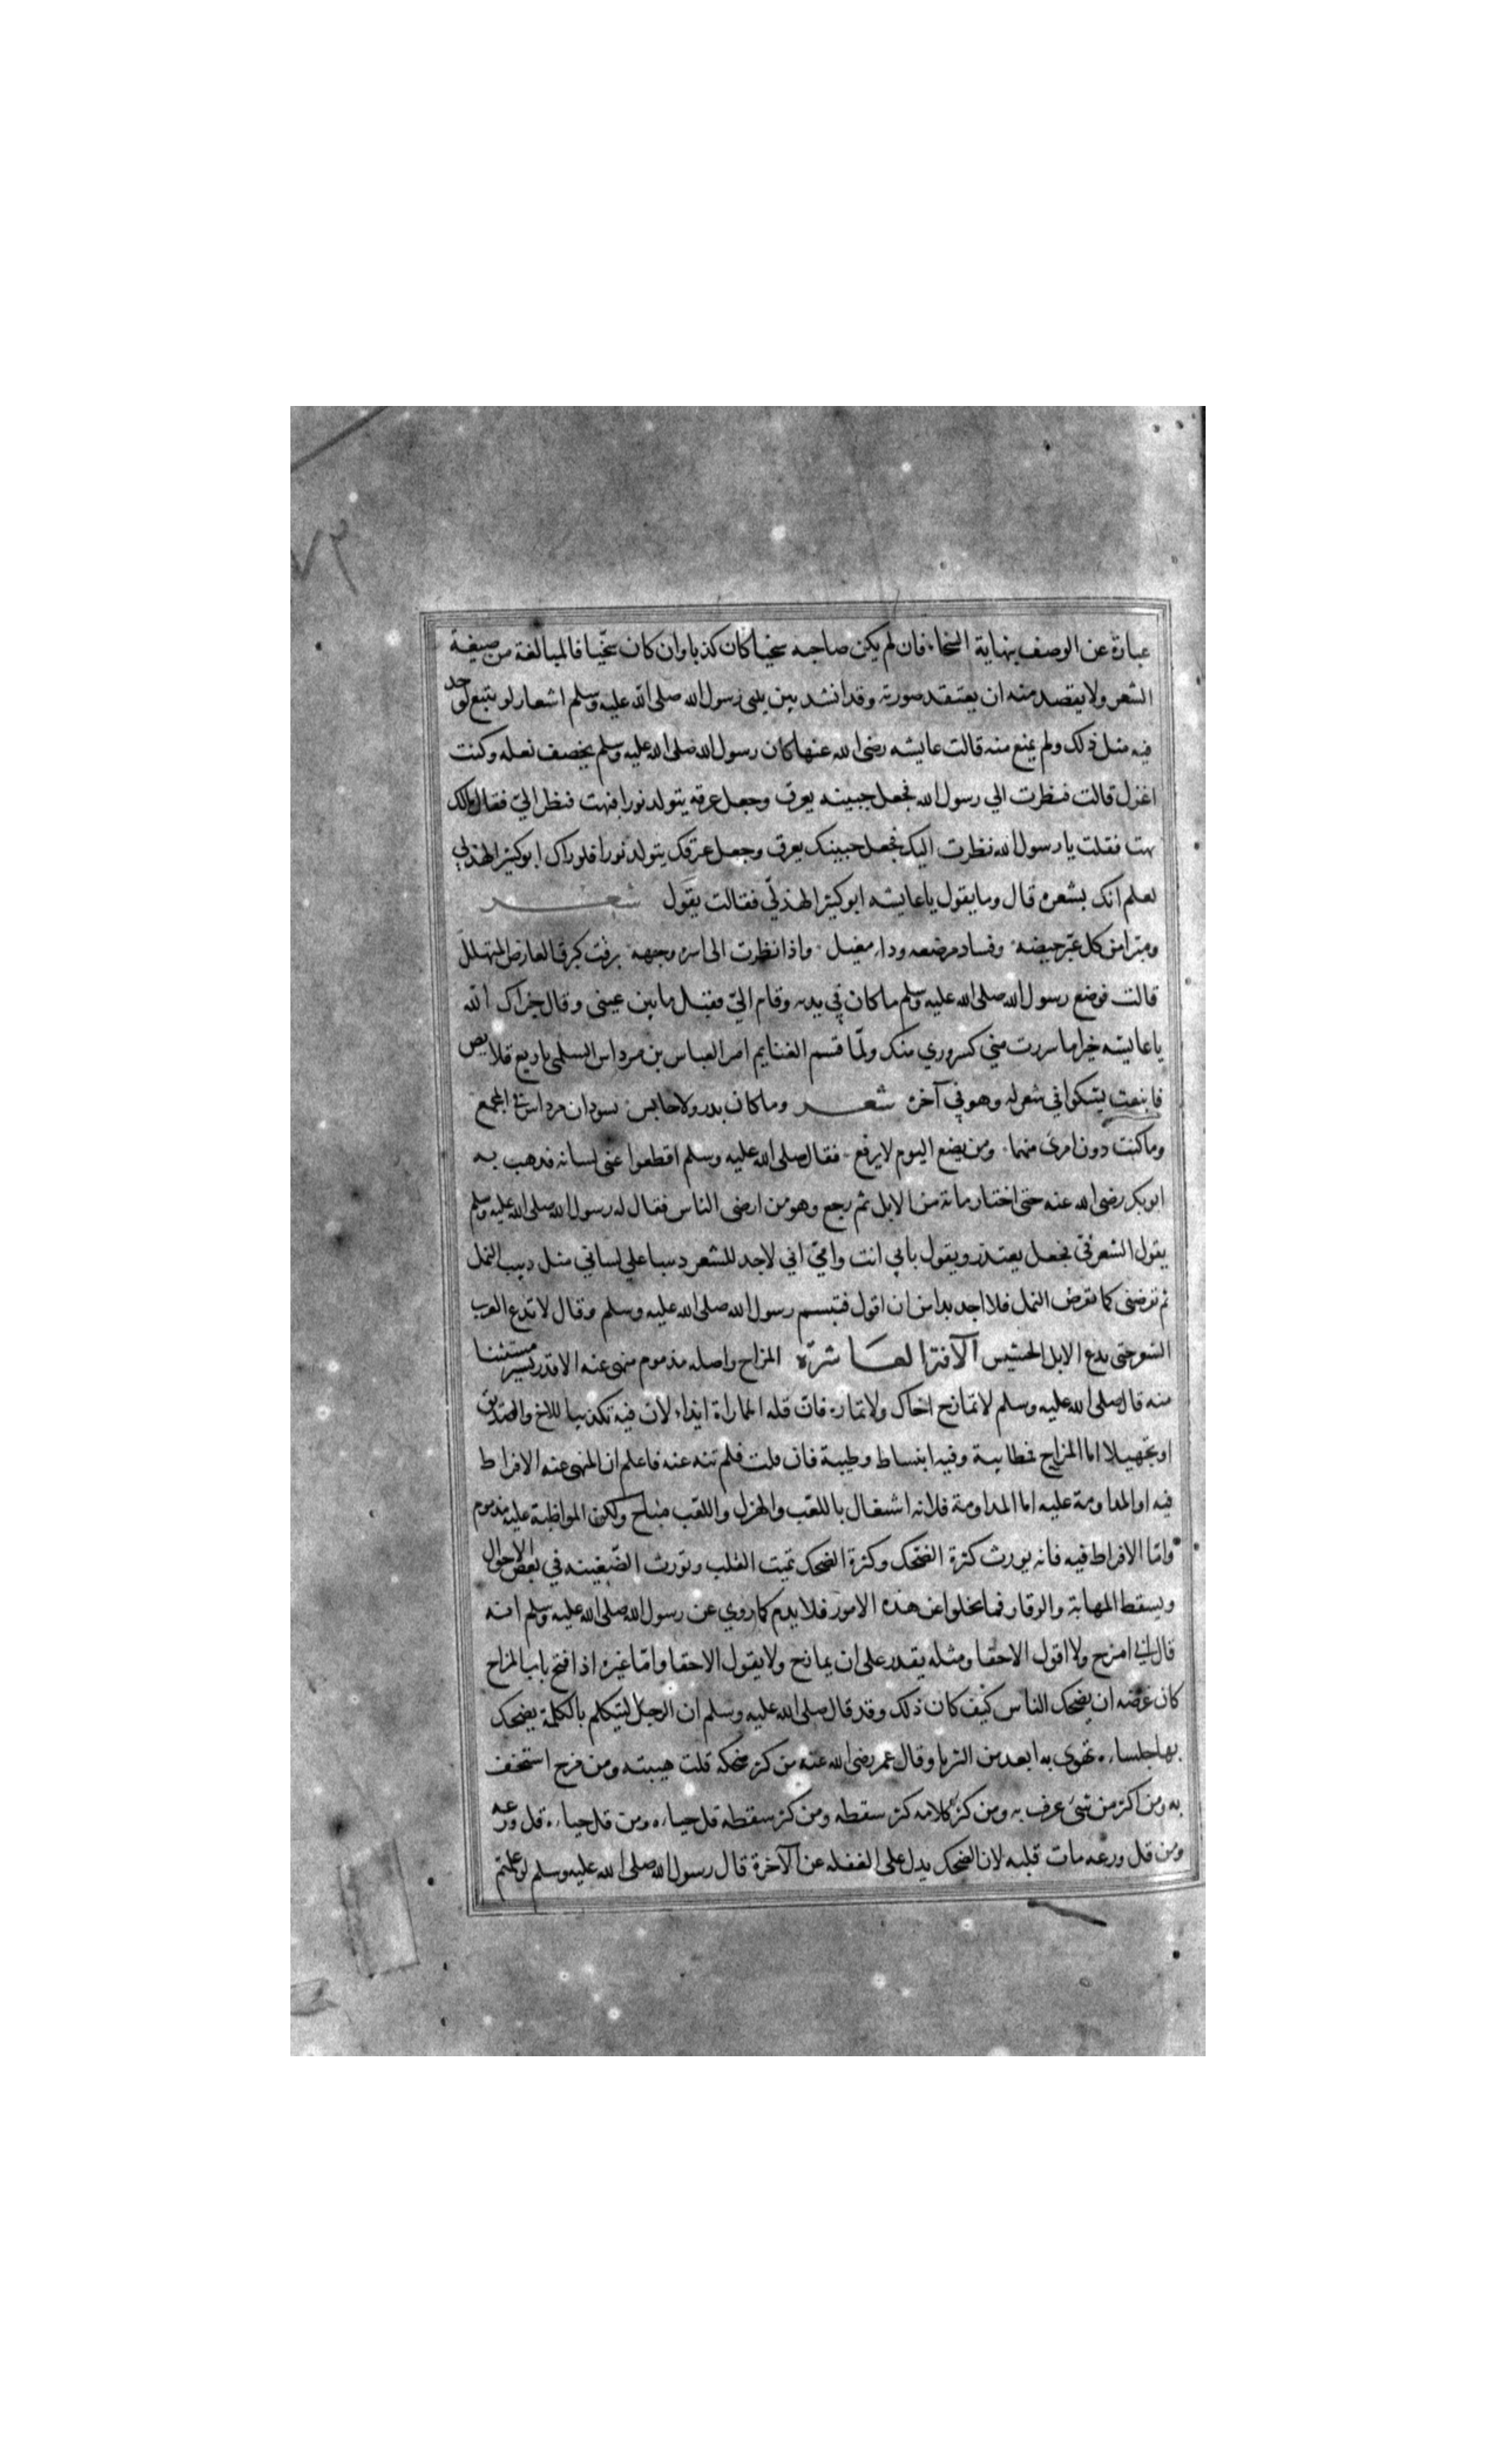 ٧٣
عبارة عن الوصف بنهاية السخاء فان لم يكن صاحبه سخيا كان كذبا وان كان سخيا فالمبالغة من صيغة
الشعر ولا يقصد منه ان يعتقد صورته وقد انشد بين يدي رسول الله صلى الله عليه وسلم اشعار لو يتبع لوجد
فيه مثل ذلك ولم يمنع منه قالت عايشه رضى الله عنها كان رسول الله صلى الله عليه وسلم يخصف نعله وكنت
اغزل قالت فنظرت الي رسول الله فجعل جبينه يعرق وجعل عرقه يتولد نورا فبهت فنظر اليّ فقال مالك
بهت فقلت يا رسول الله نظرت اليك فجعل جبينك يعرق وجعل عرقك يتولد نورا فلو راك ابو كبير الهذلي
لعلم انك بشعره قال وما يقول يا عايشه ابو كبير الهذلي فقالت يقول شعر
ومبرا من كل غبر حيضه وفساد مرضعه وداء مغيل واذا نظرت الى اسرة وجهه برقت كبرق العارض المتهلل
قالت فوضع رسول الله صلى الله عليه وسلم ما كان في يده وقام اليّ فقبل ما بين عيني وقال جزاك الله
يا عايشه خيرا ما سررت مني كسروري منك ولمّا قسم الغنايم امر العباس بن مرداس السلمى باربع قلايص
فانبعث يشكوا في شعر له وهو في آخره شعر وما كان بدر ولا حابس يسودان مرداس في المجمع
وما كنت دون امرئ منهما ومن يضع اليوم لا يرفع فقال صلى الله عليه وسلم اقطعوا عني لسانه فذهب به
ابو بكر رضى الله عنه حتى اختار مائة من الابل ثم رجع وهو من ارضى الناس فقال له رسول الله صلى الله عليه وسلم
يقول الشعر في فجعل يعتذر ويقول بابي انت وامي اني لاجد للشعر دبيبا على لساني مثل دبيب النمل
ثم تقرضنى كما تقرض النمل فلا اجد بدا من ان اقول فتبسم رسول الله صلى الله عليه وسلم وقال لا تدع العرب
الشعر حتى يدع الابل الحنين الآفة العاشرة المزاح واصله مذموم منهى عنه الا قدر يسير مستثنا
منه قال صلى الله عليه وسلم لا تمازح اخاك ولا تماره فان قلت المماراة ايذاء لان فيه تكذيبا للاخ والصديق
او تجهيلا اما المزاح فمطايبة وفيه انبساط وطيبة فان قلت فلم تنه عنه فاعلم ان المنهى عنه الافراط
فيه او المداومة عليه اما المداومة فلانه اشتغال باللعب والهزل واللعب مباح ولكن المواظبة عليه مذموم
واما الافراط فيه فانه يورث كثرة الضحك وكثرة الضحك تميت القلب وتورث الضغينه في بعض الاحوال
ويسقط المهابة والوقار فما يخلوا عن هذه الامور فلا يذم كما روي عن رسول الله صلى الله عليه وسلم انه
قال اني امزح ولا اقول الا حقا ومثله يقدر على ان يمازح ولا يقول الا حقا واما غيره اذا فتح باب المزاح
كان غرضه ان يضحك الناس كيف كان ذلك وقد قال صلى الله عليه وسلم ان الرجل ليتكلم بالكلمة يضحك
بها جلساءه تهوى به ابعد من الثريا وقال عمر رضى الله عنه من كثر ضحكه قلت هيبته ومن مزح استخف
به ومن اكثر من شئ عرف به ومن كثر كلامه كثر سقطه ومن كثر سقطه قل حياءه ومن قل حياءه قل ورعه
ومن قل ورعه مات قلبه لان الضحك يدل على الغفله عن الآخرة قال رسول الله صلى الله عليه وسلم لو علمتم